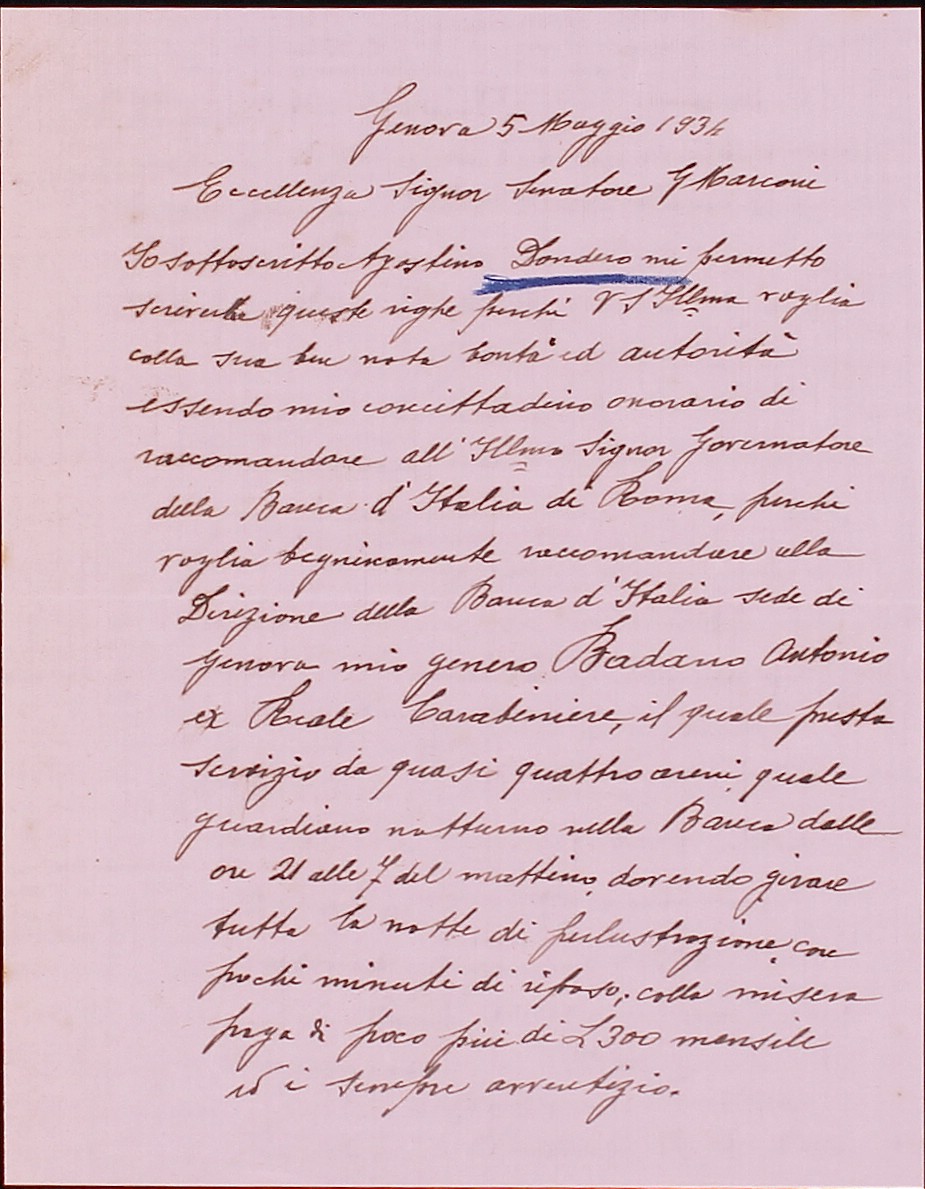 Genova 5 Maggio 1934
Eccellenza Signor Senatore G Marconi
Io sottoscritto Agostino Dondero mi permetto
scriverLe queste righe perchè V S Illma voglia
colla sua ben nota bontà ed autorità
essendo mio concittadino onorario di
raccomandare all'Illmo Signor Governatore
della Banca d'Italia di Roma, perchè
voglia begninamente raccomandare alla
Direzione della Banca d'Italia sede di
Genova mio genero Badano Antonio
ex Reale Carabiniere, il quale presta
servizio da quasi quattro anni quale
guardiano notturno nella Banca dalle
ore 21 alle 7 del mattino, dovendo girare
tutta la notte di perlustrazione, con
pochi minuti di riposo, colla misera
paga di poco più di L 300 mensile
ed è sempre avventizio.